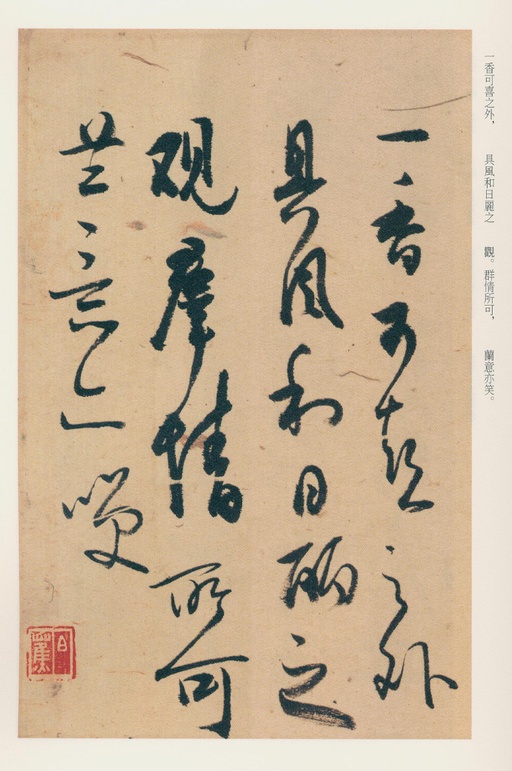 一香可喜之外，　具風和日麗之　觀。群情所可，　蘭意亦笑。
一香可喜之外
具风和日麗之
观群情所可
兰意亦笑